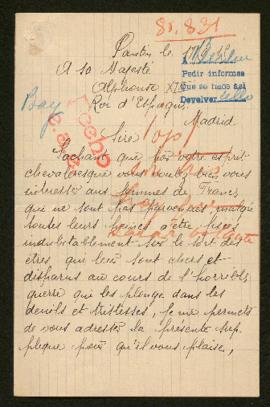 81.831
Pantin le 17
A Sa Majesté
Alphonse XIII
Roi d'Espagne
Madrid.
Pedir informes
Que se haga así
Devolver sello
Bay
Sire
Sachant que par votre esprit
chevaleresque vous voulez bien vous
intéresser aux femmes de France,
qui ne sont pas parvenues, malgré
toutes leurs peines d'être fixées
indubitablement sur le sort des
êtres qui leur sont chers et
disparus au cours de l'horrible
guerre qui les plonge dans les
deuils et tristesses, je me permets
de vous adresser la présente sup
plique pour qu'il vous plaise,